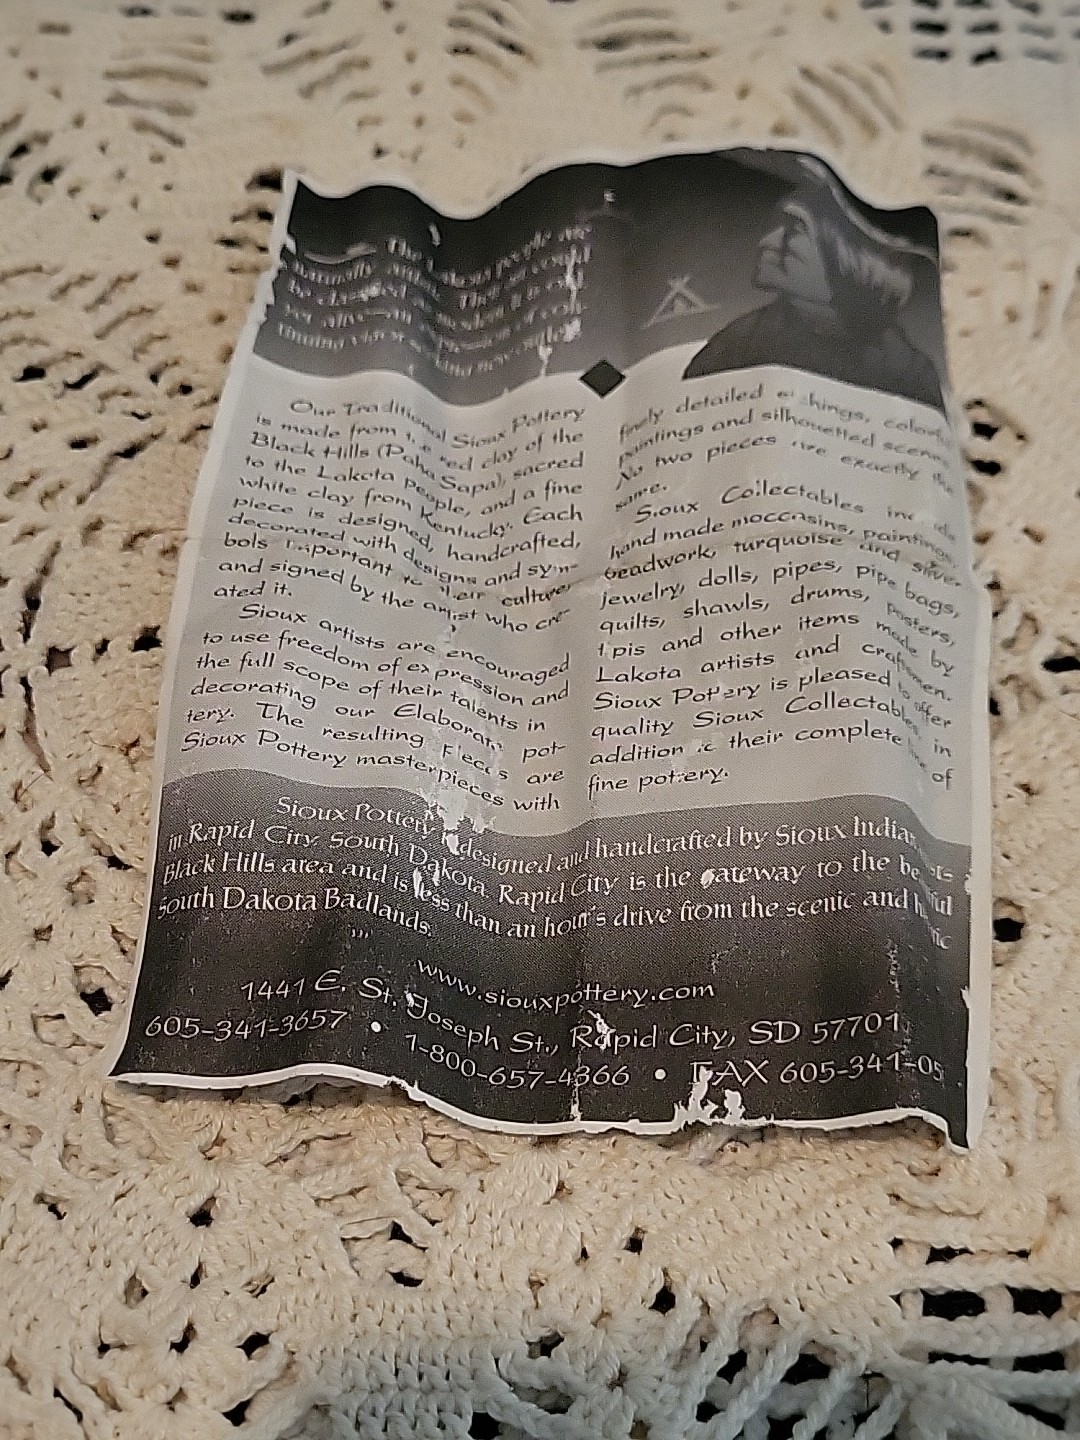 The Lakota people are
naturally
be classified
yet alive—an expression of con-
Our Traditional Sioux Pottery
is made from the red clay of the
Black Hills (Paha Sapa), sacred
to the Lakota people, and a fine
white clay from Kentucky. Each
piece is designed, handcrafted,
decorated with designs and sym-
bols important to their culture,
and signed by the artist who cre-
ated it.
Sioux artists are encouraged
to use freedom of expression and
the full scope of their talents in
decorating our Elaborate pot-
tery. The resulting pieces are
Sioux Pottery masterpieces with
finely detailed etchings, colorful
paintings and silhouetted scenes.
No two pieces are exactly the
same.
Sioux Collectables include
hand made moccasins, paintings,
beadwork, turquoise and silver
jewelry, dolls, pipes, pipe bags,
quilts, shawls, drums, posters,
tipis and other items made by
Lakota artists and craftsmen.
Sioux Pottery is pleased to offer
quality Sioux Collectables in
addition to their complete line of
fine pottery.
Sioux Pottery is designed and handcrafted by Sioux Indian artists
in Rapid City, South Dakota. Rapid City is the gateway to the beautiful
Black Hills area and is less than an hour's drive from the scenic and historic
South Dakota Badlands.
www.siouxpottery.com
1441 E. St. Joseph St., Rapid City, SD 57701
605-341-3657 • 1-800-657-4366 • FAX 605-341-05